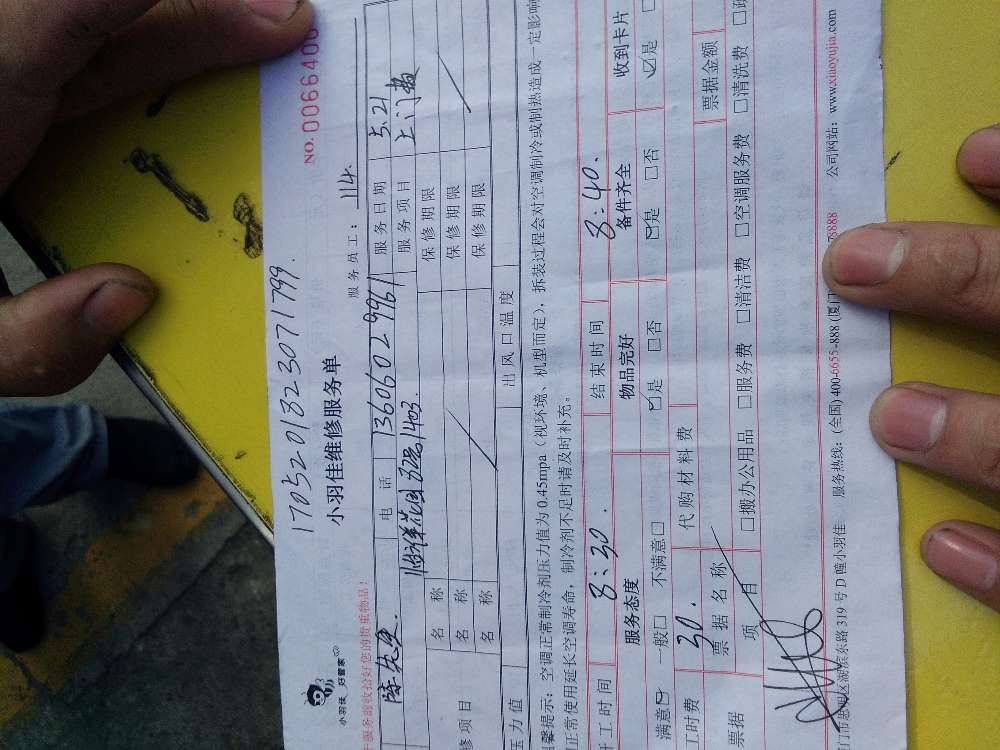 NO. 0066400
170520182307 1799.
小羽佳维修服务单
小羽佳 好管家
服务员工： 114.
服务前收拾好您的贵重物品！
电话 13606029961 服务日期 5.21
花园 1403. 服务项目 上门费
修项目 名称 保修期限
名称 保修期限
名称 保修期限
压力值 出风口温度
馨提示：空调正常制冷剂压力值为0.45mpa（视环境、机型而定），拆装过程会对空调制冷或制热造成一定影响
正常使用延长空调寿命，制冷剂不足时请及时补充。
开工时间 8:30. 结束时间 8:40.
服务态度 物品完好 备件齐全 收到卡片
满意☑ 一般□ 不满意□ ☑是 □否 ☑是 □否 ☑是
工时费 30. 代购材料费
票据 票据名称 票据金额
项目 □搬办公用品 □服务费 □清洁费 □空调服务费 □清洗费
门市思明区湖滨东路319号D幢小羽佳 服务热线：(全国) 400-6655-888 (厦门 78888 公司网站：www.xiaoyujia.com